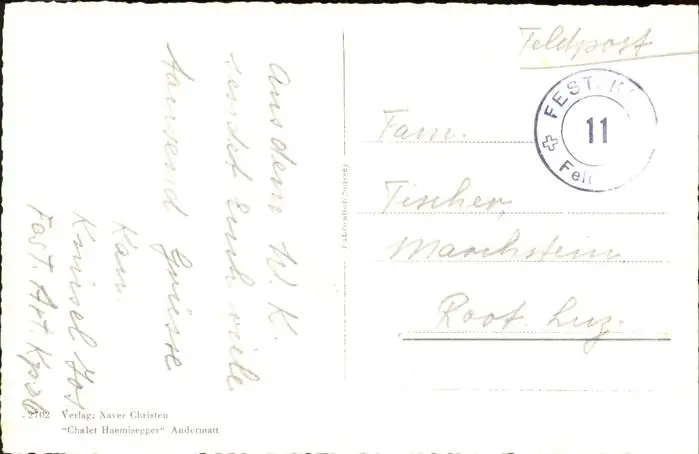 Aus dem W. K.
sendet Euch viele
tausend Grüsse
Kan.
Jos
Fest. Art. Kp.
Feldpost
FEST. K
11
Fel
Fam.
Fischer,
Marchstein
Root. Luz.
(Fabrication Suisse)
2702 Verlag: Xaver Christen
"Chalet Haemisegger" Andermatt